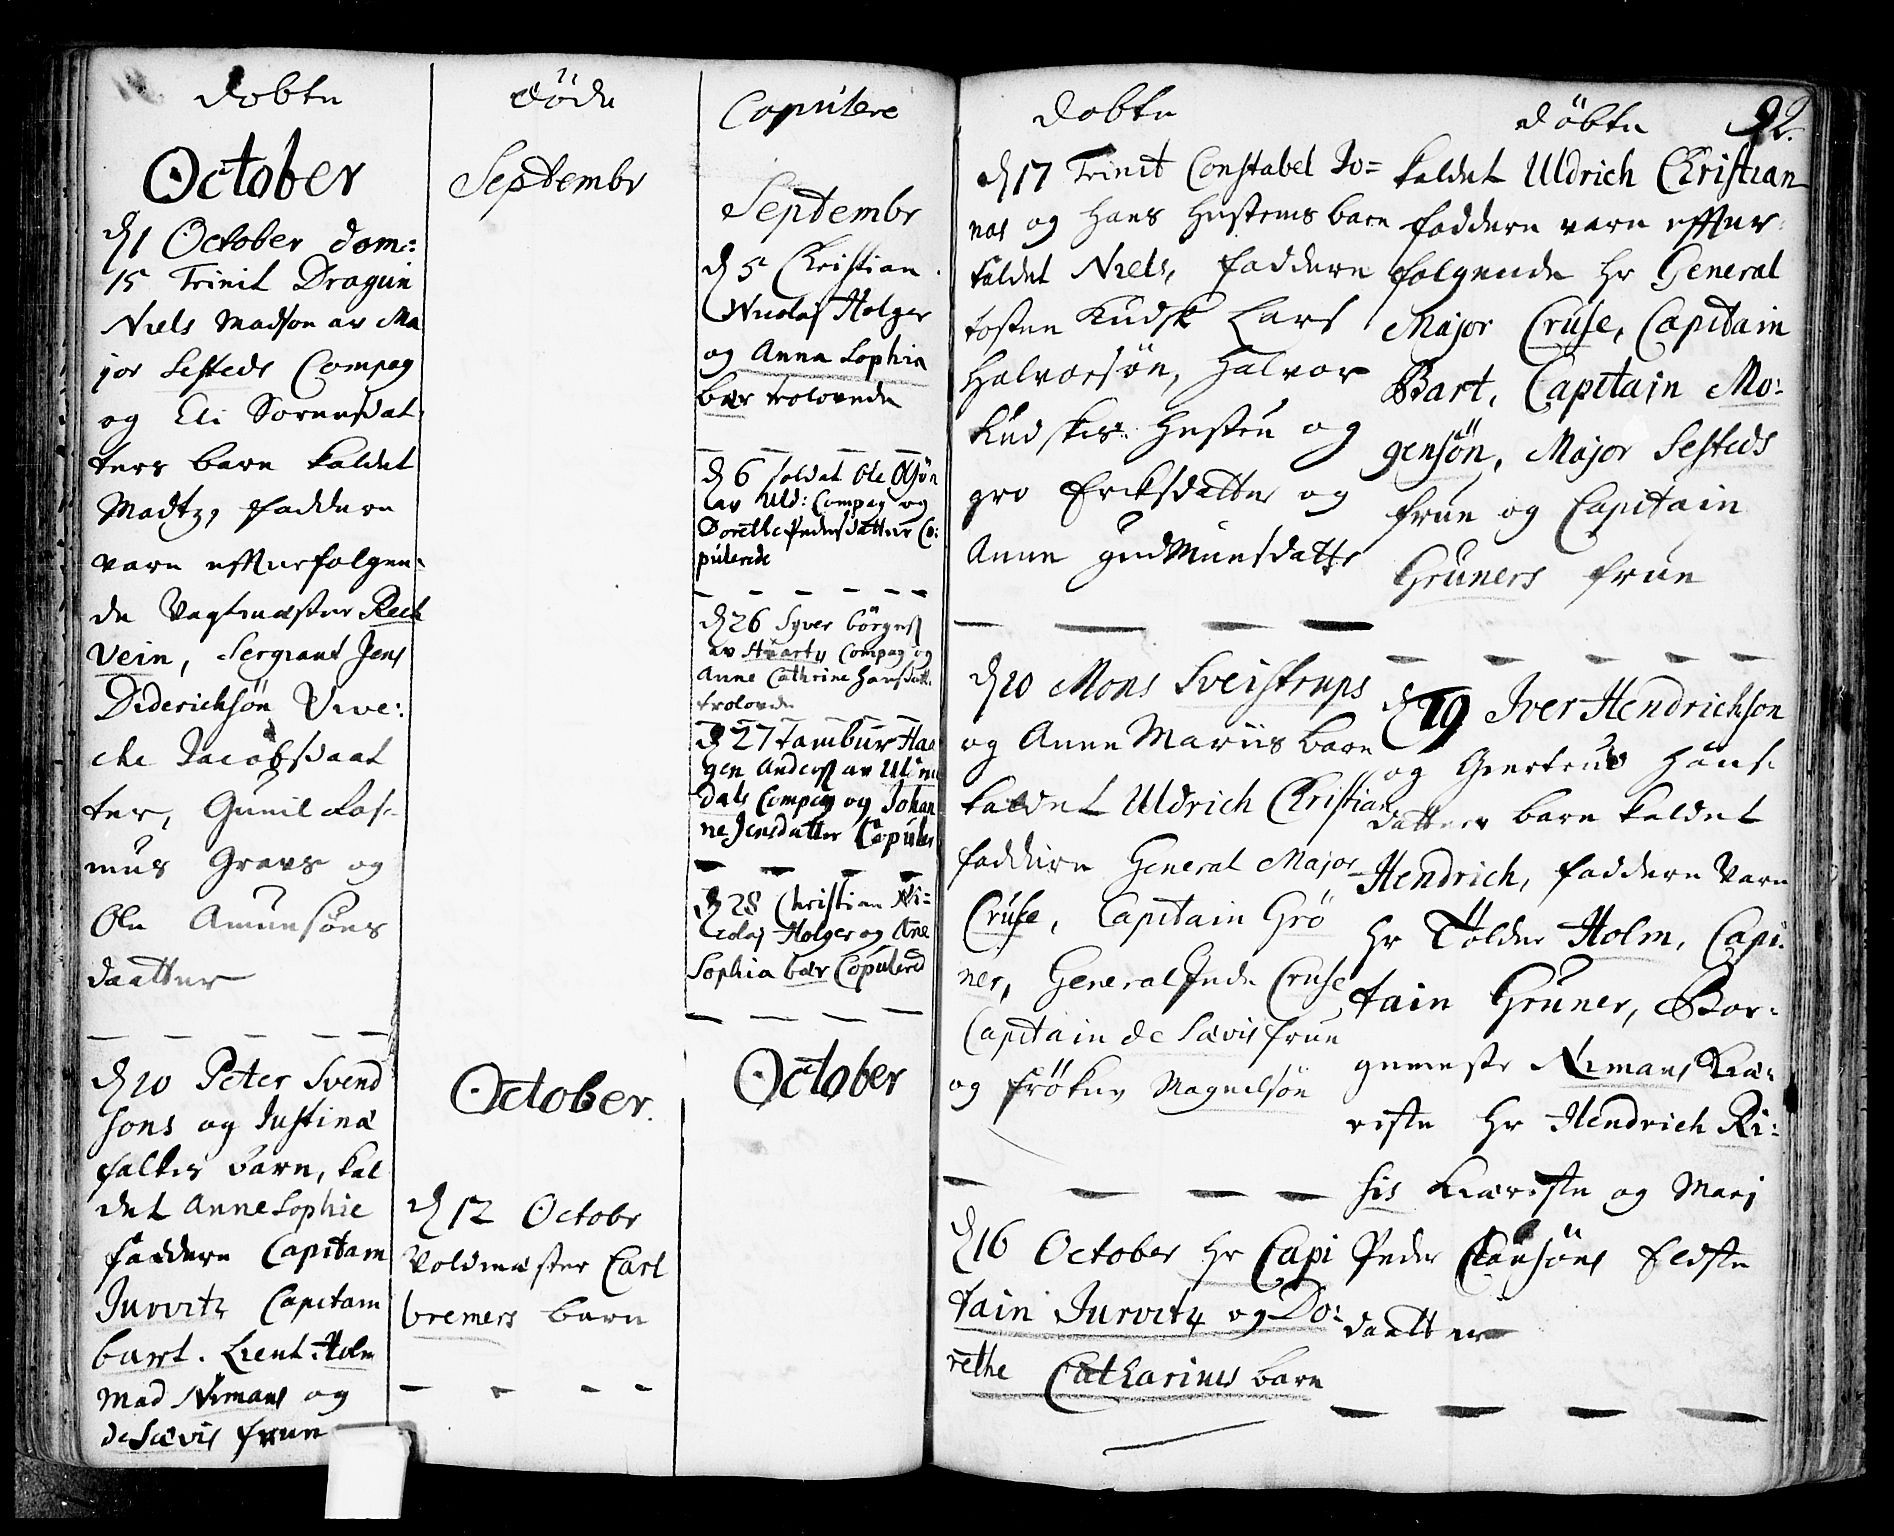 Döbte
October
d. 1 October dom:
15 Trinit Dragun
Niels Madson av Ma
jor Sesteds Compag
og Eli Sorensdat
ters barn kaldet
Madtz, faddere
vare effterfolgen-
de Vagtmester Rech
Vein, Sergiant Jens
Diderichsön Vive:
che Jacobsdaat
ter, Gunil Ras-
mus Gravs og
Ole Amunsöns
daatter
d. 10 Peter Svend
sons og Justina
falkes barn, kal
det Anne Sophie
faddere Capitain
Jurvitz Capitain
bart. Lieut: Holm
Mad Nimans og
de Sævis frue
Döde
Septembr
October.
d. 12 Octobr
Voldmester Carl
bremers barn
Copulere
Septembr
d. 5 Christian
Nicolaj Holger
og Anna Sophia
bær trolovede
d. 6 soldat Ole Olsön
av Uld: Compag og
Dorethe Pedersdatter Co:
pulerede
d. 26 Syver börges
av Stuarty Compag og
Anne Cathrine Hansdatt:
trolovede
d. 27 tambur Haa
gen Anders av Ulsin
dals Compag og Johan
ne Jensdatter Copuler
d. 28 Christian Ni=
colaj Holger og Ane
Sophia bær Copulered
October
Döbte
d. 17 Trinit Constabel Jo=
nas og hans hustrues barn
kaldet Niels, faddere
tosten Kudsk Lars
Halvorsön, Halvor
Kudskes hustru og
gro Ericksdatter og
Anne gudMunsdatte
d. 10 Mons Sveistrups
og Anne Mariis barn
kaldet Uldrich Christian
faddere General Major
Cruse, Capitain Grö
ner, General Inde Cruse
Capitain de Sævis frue
og fröken Magnelsön
d. 16 October hr Capi
tain Jurvitz og Do:
rethe Catharines barn
Döbte 92.
kaldet Uldrich Christian
faddere vare effter-
folgende hr General
Major Cruse, Capitain
Bart, Capitain Mo:
gensön, Major Sesteds
frue og Capitain
Gruners frue
d. 19 Iver Hendrichson
og Giertrud Hans-
datters barn kaldet
Hendrich, faddere vare
hr Tolder Holm, Capi-
tain Gruner, Bor-
gemester Nimans Kiæ-
riste hr Hendrich Ri:
sis Kiæriste og Marj
Peder Clausöns Eldste
daatter